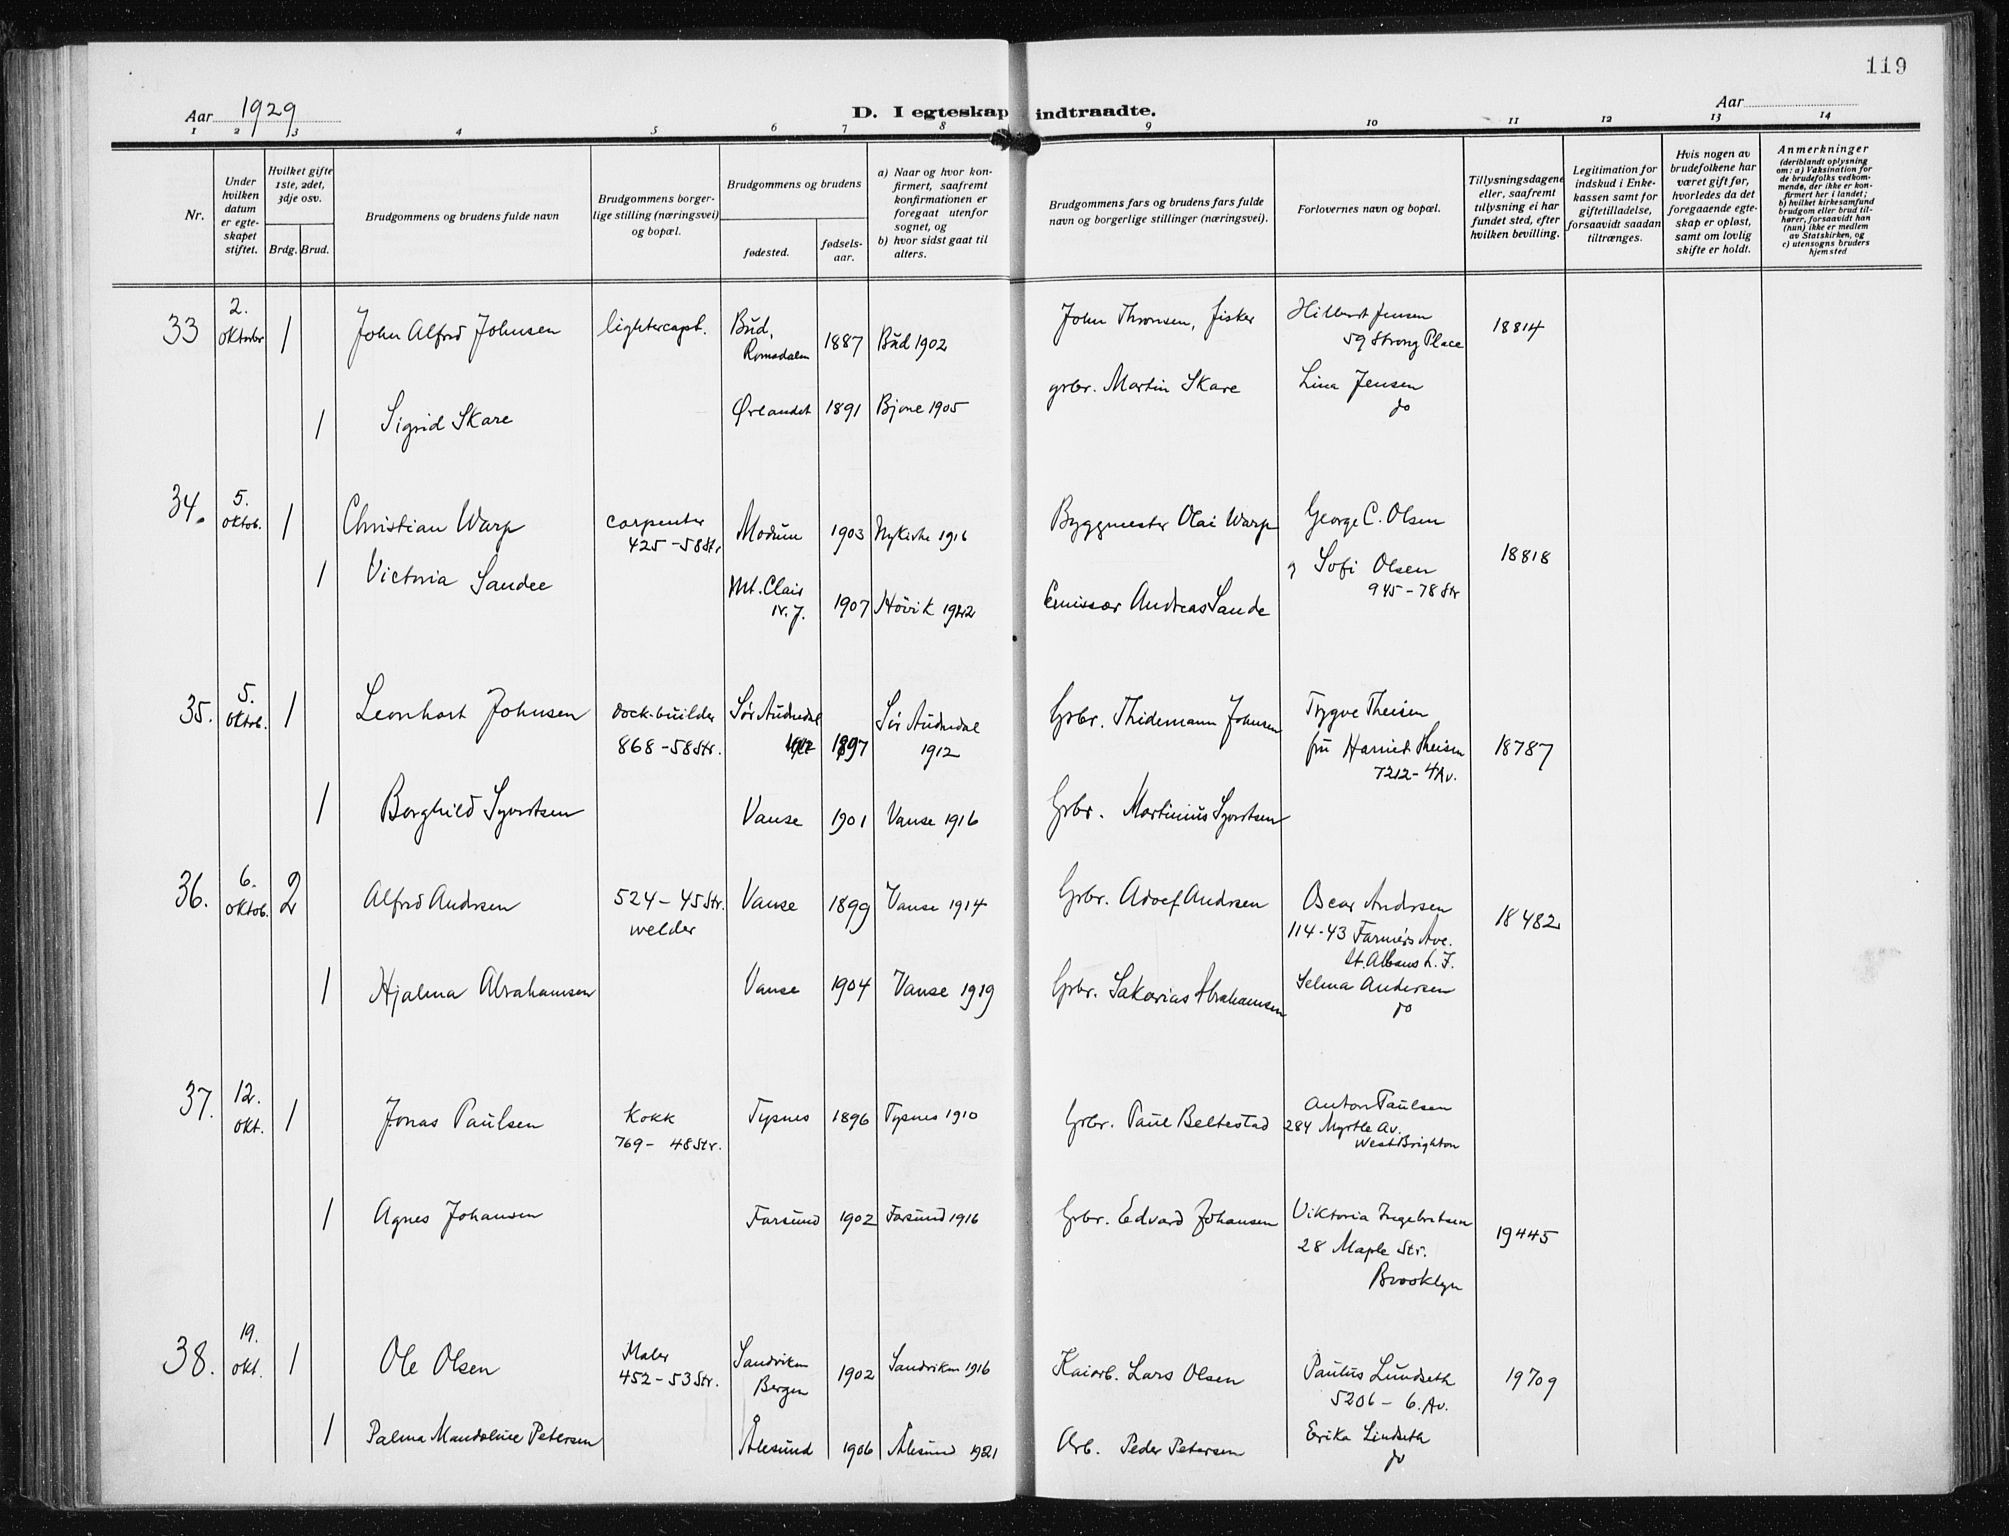 119
Aar 1929
D. I egteskap indtraadte.
Aar
1 2 3 4 5 6 7 8 9 10 11 12 13 14
Nr.
Under hvilken datum er egteskapet stiftet.
Hvilket gifte 1ste, 2det, 3dje osv.
Brdg. Brud.
Brudgommens og brudens fulde navn
Brudgommens borgerlige stilling (næringsvei) og bopæl.
Brudgommens og brudens
fødested.
fødselsaar.
a) Naar og hvor konfirmert, saafremt konfirmationen er foregaat utenfor sognet, og
b) hvor sidst gaat til alters.
Brudgommens fars og brudens fars fulde navn og borgerlige stillinger (næringsvei).
Forlovernes navn og bopæl.
Tillysningsdagene eller, saafremt tillysning ei har fundet sted, efter hvilken bevilling.
Legitimation for indskud i Enkekassen samt for giftetilladelse, forsaavidt saadan tiltrænges.
Hvis nogen av brudefolkene har været gift før, hvorledes da det foregaaende egteskap er opløst, samt om lovlig skifte er holdt.
Anmerkninger
(deriblandt oplysning om: a) Vaksination for de brudefolks vedkommende, der ikke er konfirmert her i landet; b) hvilket kirkesamfund brudgom eller brud tilhører, forsaavidt han (hun) ikke er medlem av Statskirken, og c) utensogns bruders hjemsted
33 2. oktober 1 John Alfred Johnsen lightercapt. Bud, Romsdalen 1887 Bud 1902 John Thronsen, fisker Hilbert Jensen 59 Strong Place 18814
1 Sigrid Skare Ørlandet 1891 Bjone 1905 grbr. Martin Skare Lina Jensen do
34. 5. oktob. 1 Christian Warp carpenter 425-58 Str Modum 1903 Nykirke 1916 Byggmester Olai Warp George C. Olsen
1 Victoria Sandee Mt. Clair N.J. 1907 Høvik 1922 Emissær Andreas Sande Sofi Olsen 945-78 Str 18818
35. 5. oktob. 1 Leonhart Johnsen dock-builder 868-58 Str. Sør Audnedal 1897 Sør Audnedal 1912 Grbr. Thidemann Johnsen Trygve Theisen fru Harriet Theisen 7212-4 Av. 18787
1 Borghild Syvertsen Vanse 1901 Vanse 1916 Grbr. Martinius Syvertsen
36. 6. oktob. 2 Alfred Andrsen 524-45 Str. welder Vanse 1899 Vanse 1914 Grbr. Adolf Andrsen Oscar Andrsen 114-43 Farmers Ave. St. Albans L.I. 18482
1 Hjalma Abrahamsen Vanse 1904 Vanse 1919 Grbr. Sakarias Abrahamsen Selma Andersen do
37. 12. okt. 1 Jonas Paulsen Kokk 769-48 Str. Tysnes 1896 Tysnes 1910 Grbr. Paul Beltestad Anton Paulsen 284 Myrtle Av. West Brighton
1 Agnes Johansen Farsund 1902 Farsund 1916 Grbr. Edvard Johansen Viktoria Ingebretsen 28 Maple Str. Brooklyn 19445
38. 19. okt. 1 Ole Olsen Maler 452-53 Str. Sandviken Bergen 1902 Sandviken 1916 Kaiarb. Lars Olsen Paulus Lundseth 5206-6. Av. 19709
1 Palma Mandoline Petersen Ålesund 1906 Ålesund 1921 Arb. Peder Petersen Erika Lindseth do